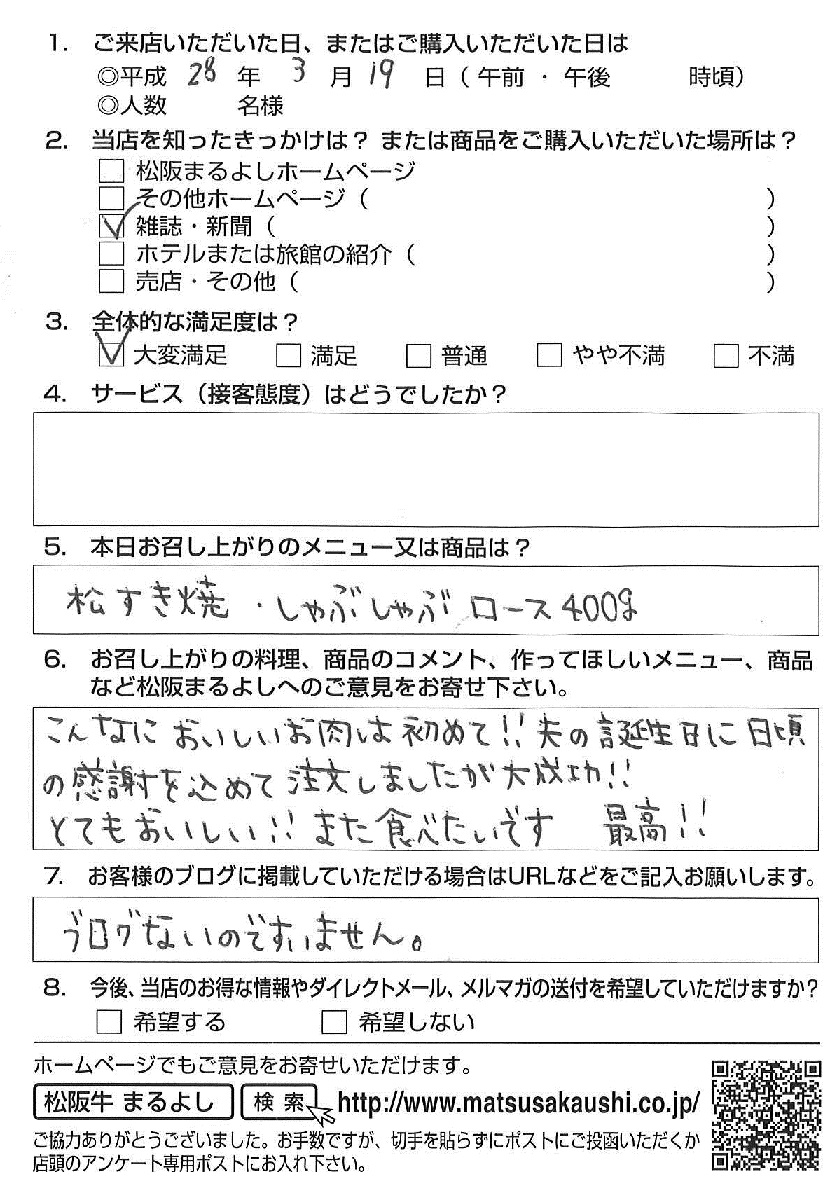 1. ご来店いただいた日、またはご購入いただいた日は
◎平成 28 年 3 月 19 日（午前・午後 時頃）
◎人数 名様
2. 当店を知ったきっかけは？ または商品をご購入いただいた場所は？
□ 松阪まるよしホームページ
□ その他ホームページ（ ）
☑ 雑誌・新聞（ ）
□ ホテルまたは旅館の紹介（ ）
□ 売店・その他（ ）
3. 全体的な満足度は？
☑ 大変満足 □ 満足 □ 普通 □ やや不満 □ 不満
4. サービス（接客態度）はどうでしたか？
5. 本日お召し上がりのメニュー又は商品は？
松すき焼・しゃぶしゃぶ ロース 400g
6. お召し上がりの料理、商品のコメント、作ってほしいメニュー、商品
など松阪まるよしへのご意見をお寄せ下さい。
こんなにおいしいお肉は初めて!! 夫の誕生日に日頃
の感謝を込めて注文しましたが大成功!!
とてもおいしい!! また食べたいです 最高!!
7. お客様のブログに掲載していただける場合はURLなどをご記入お願いします。
ブログないのですいません。
8. 今後、当店のお得な情報やダイレクトメール、メルマガの送付を希望していただけますか？
□ 希望する □ 希望しない
ホームページでもご意見をお寄せいただけます。
松阪牛 まるよし 検索 http://www.matsusakaushi.co.jp/
ご協力ありがとうございました。お手数ですが、切手を貼らずにポストにご投函いただくか
店頭のアンケート専用ポストにお入れ下さい。